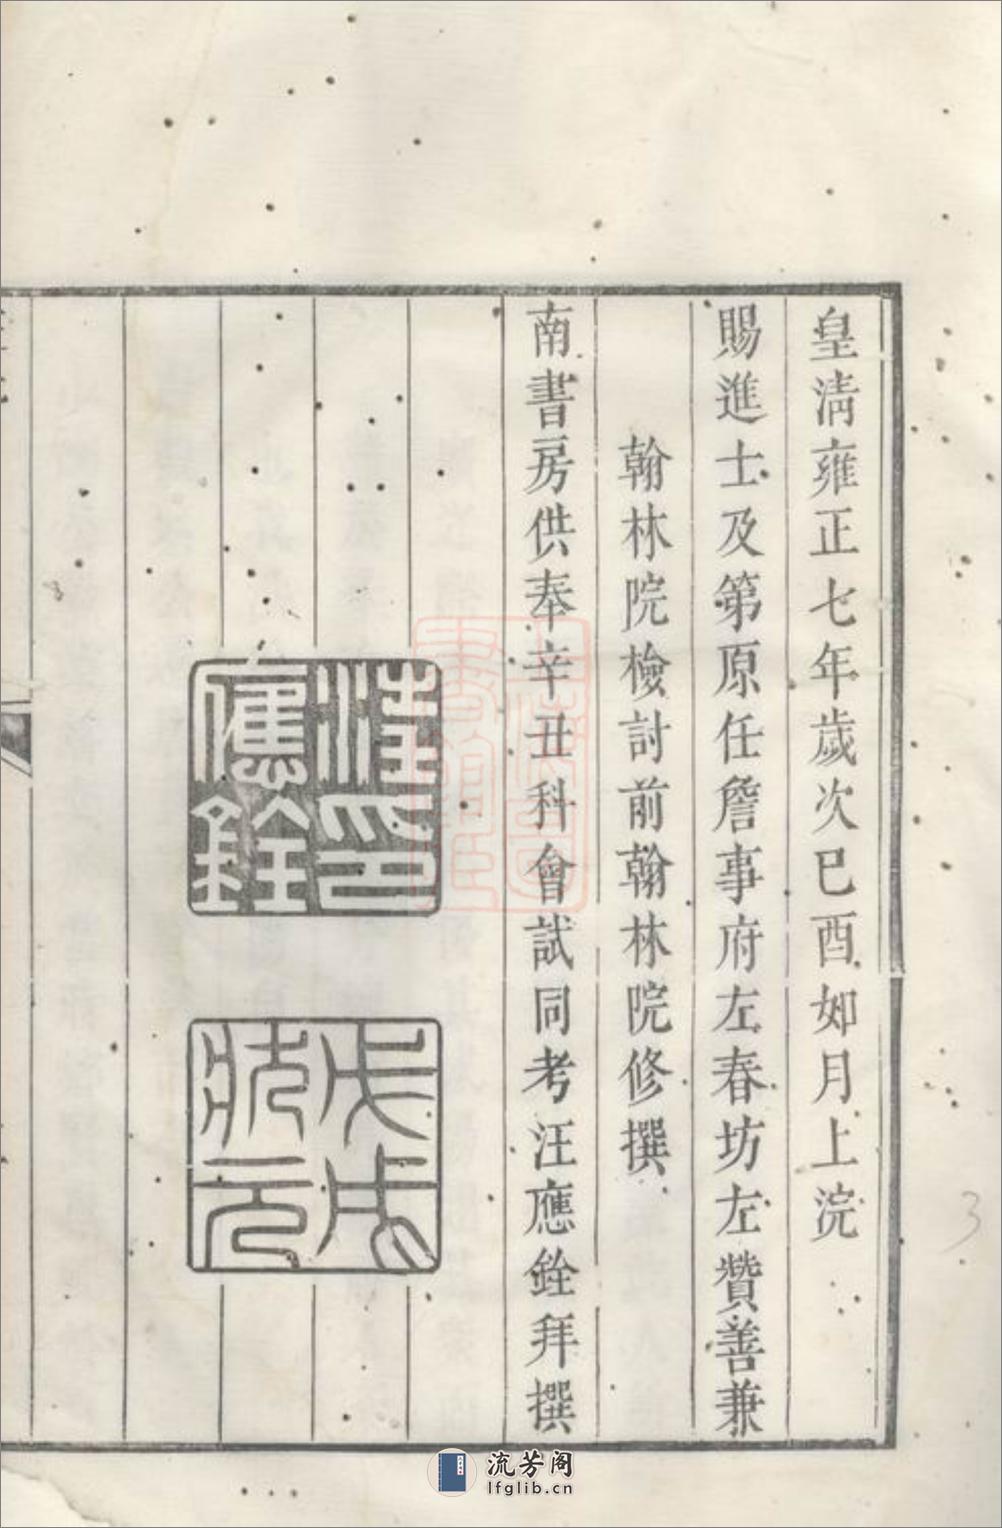 皇清雍正七年歲次巳酉如月上浣
賜進士及第原任詹事府左春坊左贊善兼
翰林院檢討前翰林院修撰
南書房供奉辛丑科會試同考汪應銓拜撰
汪印應銓
戊戌狀元
3
流芳阁
lfglib.cn